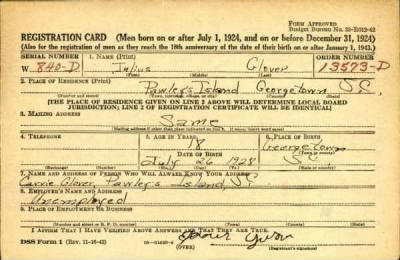 FORM APPROVED
Budget Bureau No. 33-R012-42
REGISTRATION CARD (Men born on or after July 1, 1924, and on or before December 31, 1924)
(Also for the registration of men as they reach the 18th anniversary of the date of their birth on or after January 1, 1943.)
SERIAL NUMBER 1. NAME (Print) ORDER NUMBER
W 840-D Julius Glover 13573-D
(First) (Middle) (Last)
2. PLACE OF RESIDENCE (Print)
Pawley's Island Georgetown S.C.
(Number and street) (Town, township, village, or city) (County) (State)
[THE PLACE OF RESIDENCE GIVEN ON LINE 2 ABOVE WILL DETERMINE LOCAL BOARD
JURISDICTION; LINE 2 OF REGISTRATION CERTIFICATE WILL BE IDENTICAL]
3. MAILING ADDRESS
Same
[Mailing address if other than place indicated on line 2. If same, insert word same]
4. TELEPHONE 5. AGE IN YEARS 6. PLACE OF BIRTH
18 Georgetown
DATE OF BIRTH (Town or county)
July 26 1928 S.C.
(Exchange) (Number) (Mo.) (Day) (Yr.) (State or country)
7. NAME AND ADDRESS OF PERSON WHO WILL ALWAYS KNOW YOUR ADDRESS
Carrie Glover, Pawley's Island S.C.
8. EMPLOYER'S NAME AND ADDRESS
Unemployed
9. PLACE OF EMPLOYMENT OR BUSINESS
(Number and street or R. F. D. number) (Town) (County) (State)
I AFFIRM THAT I HAVE VERIFIED ABOVE ANSWERS AND THAT THEY ARE TRUE.
DSS Form 1 (Rev. 11-16-42) (OVER)
(Registrant's signature)